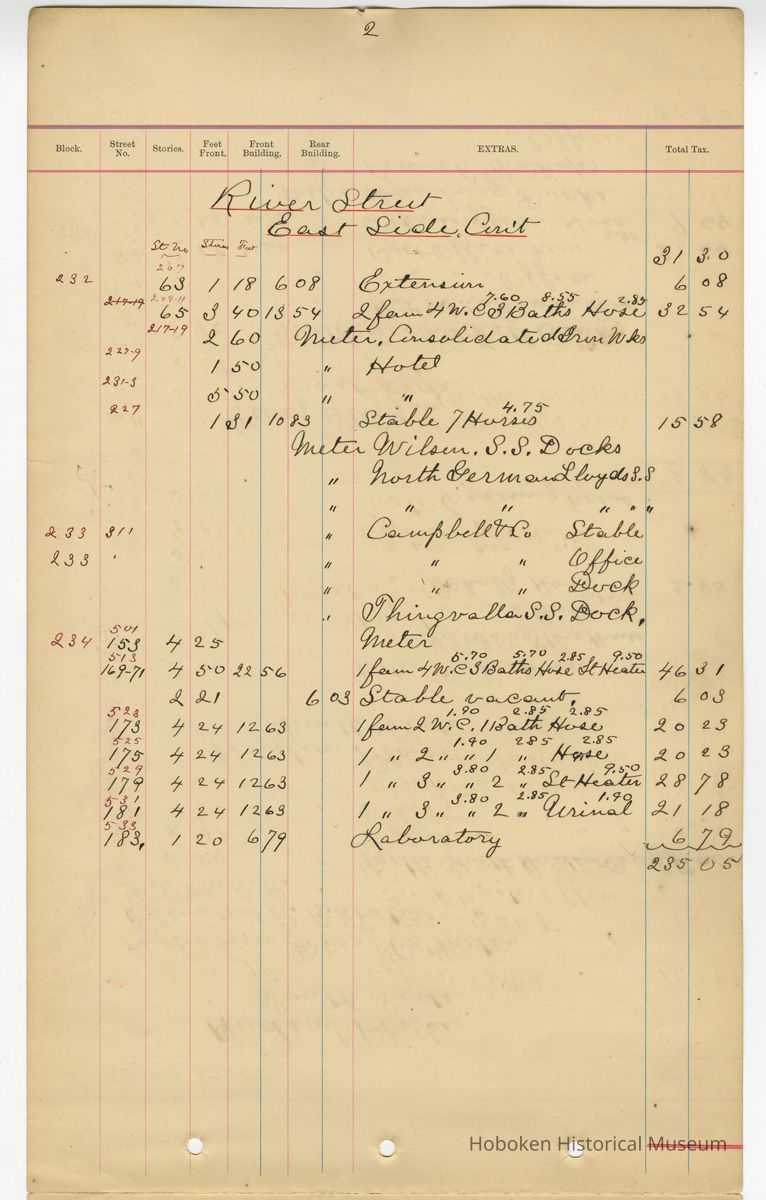 2
Block. Street No. Stories. Feet Front. Front Building. Rear Building. EXTRAS. Total Tax.
River Street
East Side, Con't
St No Feet
31 30
207
232 63 1 18 6 08 Extension 6 08
217-19 209-11 7.60 8.55 2.85
65 3 40 13 54 2 fam 4 W.C 3 Baths Hose 32 54
217-19 2 60 Meter, Consolidated Iron Wks
227-9
1 50 " Hotel
231-3
5 50 " "
227 4.75
1 31 10 83 Stable 7 Horses 15 58
Meter Wilson. S.S. Docks
" North German Lloyds S.S
" " " " " "
233 311 " Campbell & Co Stable
233 " " " Office
" " " Dock
" Thingvalla S.S. Dock,
501
234 153 4 25 Meter
513 5.70 5.70 2.85 9.50
169-71 4 50 22 56 1 fam 4 W.C 3 Baths Hose St Heater 46 31
2 21 6 03 Stable vacant, 6 03
523 1.90 2.85 2.85
173 4 24 12 63 1 fam 2 W.C. 1 Bath Hose 20 23
525 1.90 2.85 2.85
175 4 24 12 63 1 " 2 " " 1 " Hose 20 23
529 3.80 2.85 9.50
179 4 24 12 63 1 " 3 " " 2 " St Heater 28 78
531 3.80 2.85 1.90
181 4 24 12 63 1 " 3 " " 2 " Urinal 21 18
533
183, 1 20 6 79 Laboratory 6 79
235 05
Hoboken Historical Museum